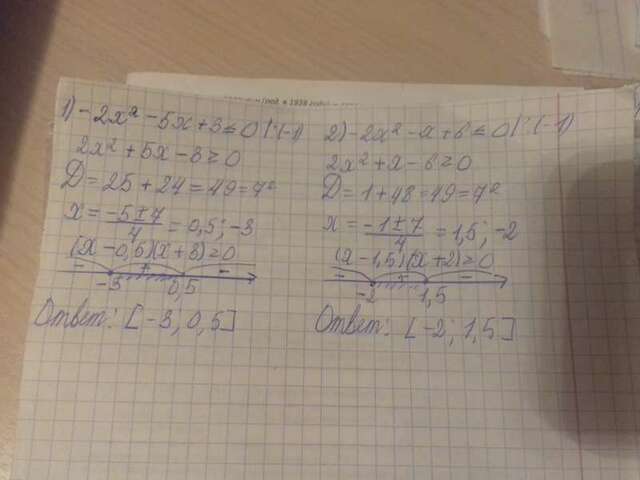 1) -2x² - 5x + 3 ≤ 0 |:(-1)
2x² + 5x - 3 ≥ 0
D = 25 + 24 = 49 = 7²
x = -5 ± 7 / 4 = 0,5; -3
(x - 0,5)(x + 3) = 0
-3 0,5
Ответ: [-3, 0,5]
2) -2x² - x + 6 ≤ 0 |:(-1)
2x² + x - 6 ≥ 0
D = 1 + 48 = 49 = 7²
x = -1 ± 7 / 4 = 1,5; -2
(x - 1,5)(x + 2) = 0
-2 1,5
Ответ: [-2; 1,5]